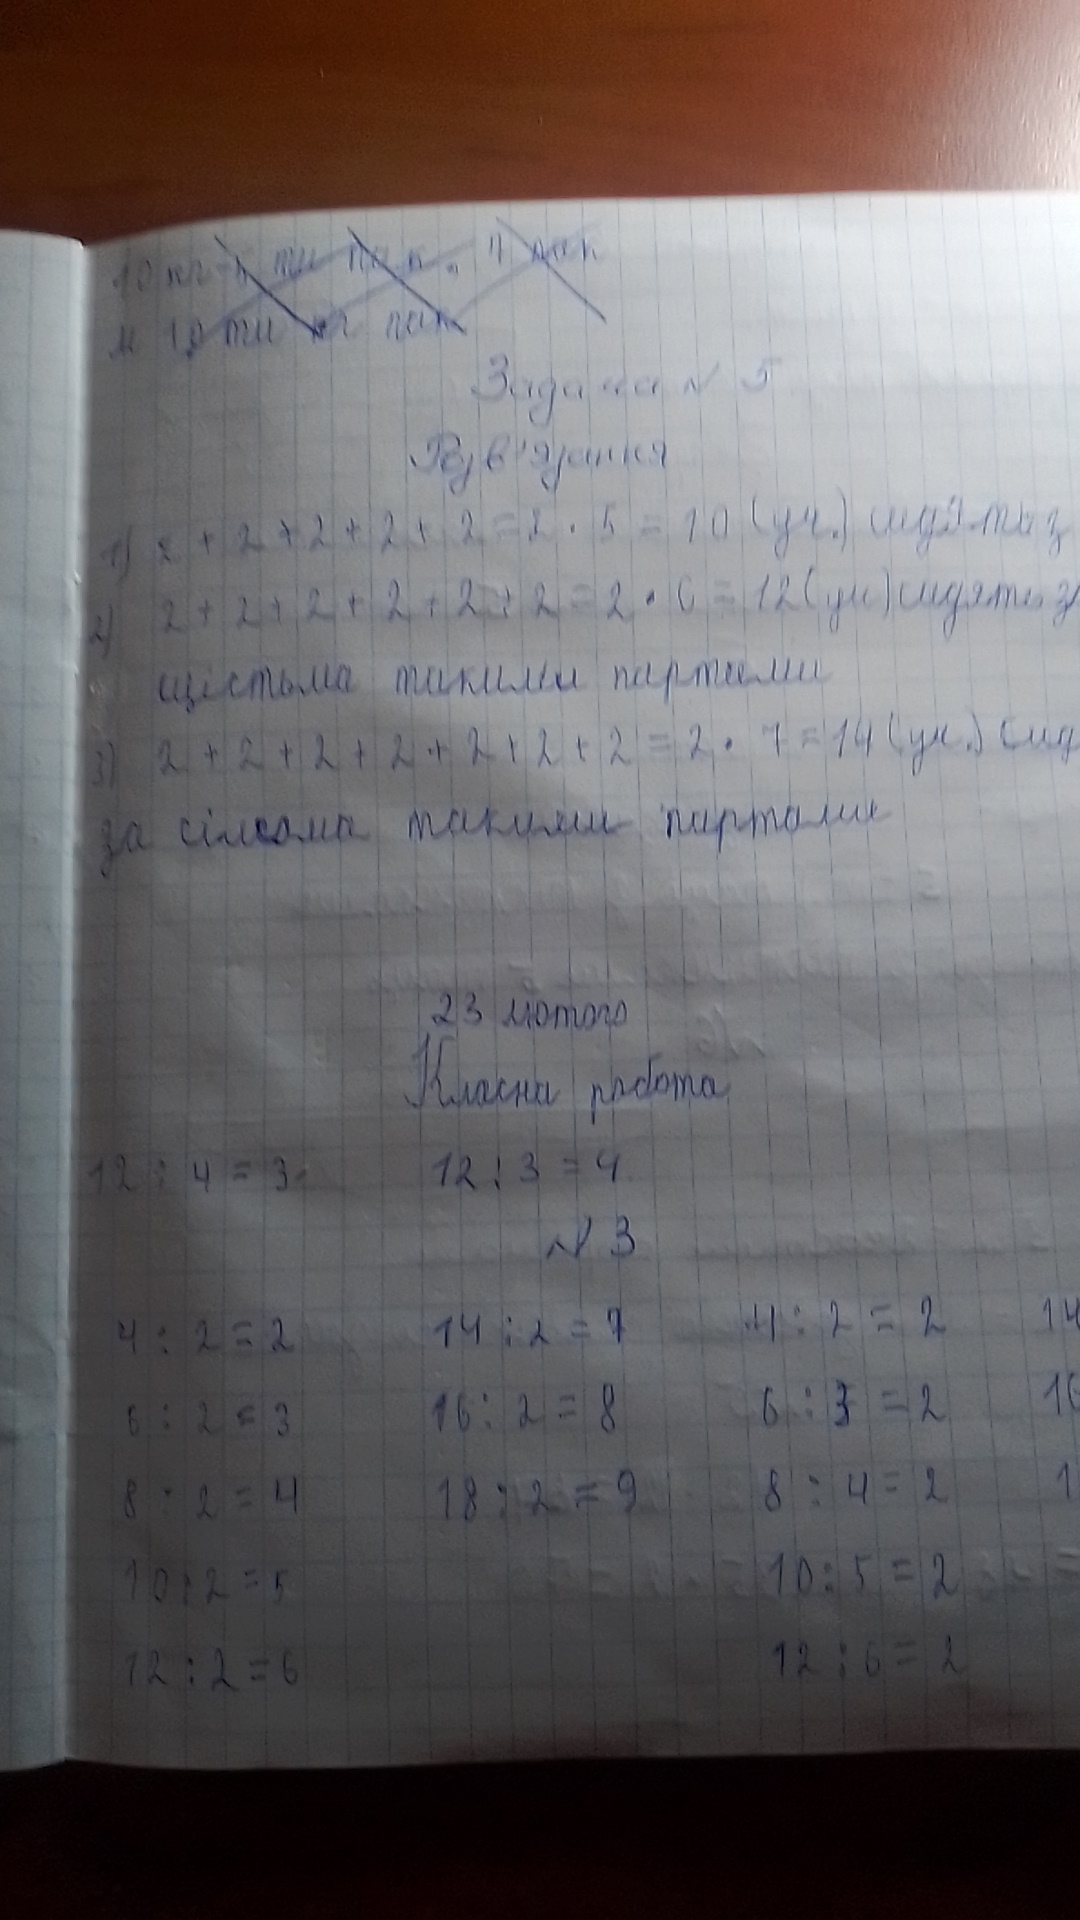 Задача № 5
Розв'язання
1) 2 + 2 + 2 + 2 + 2 = 2 · 5 = 10 (уч.) сидять з
2) 2 + 2 + 2 + 2 + 2 + 2 = 2 · 6 = 12 (уч) сидять з
шістьма такими партами
3) 2 + 2 + 2 + 2 + 2 + 2 + 2 = 2 · 7 = 14 (уч.) сид
за сімома такими партами
23 лютого
Класна робота
12 : 4 = 3 12 : 3 = 4
№ 3
4 : 2 = 2 14 : 2 = 7 4 : 2 = 2 14
6 : 2 = 3 16 : 2 = 8 6 : 3 = 2 16
8 : 2 = 4 18 : 2 = 9 8 : 4 = 2 1
10 : 2 = 5 10 : 5 = 2
12 : 2 = 6 12 : 6 = 2